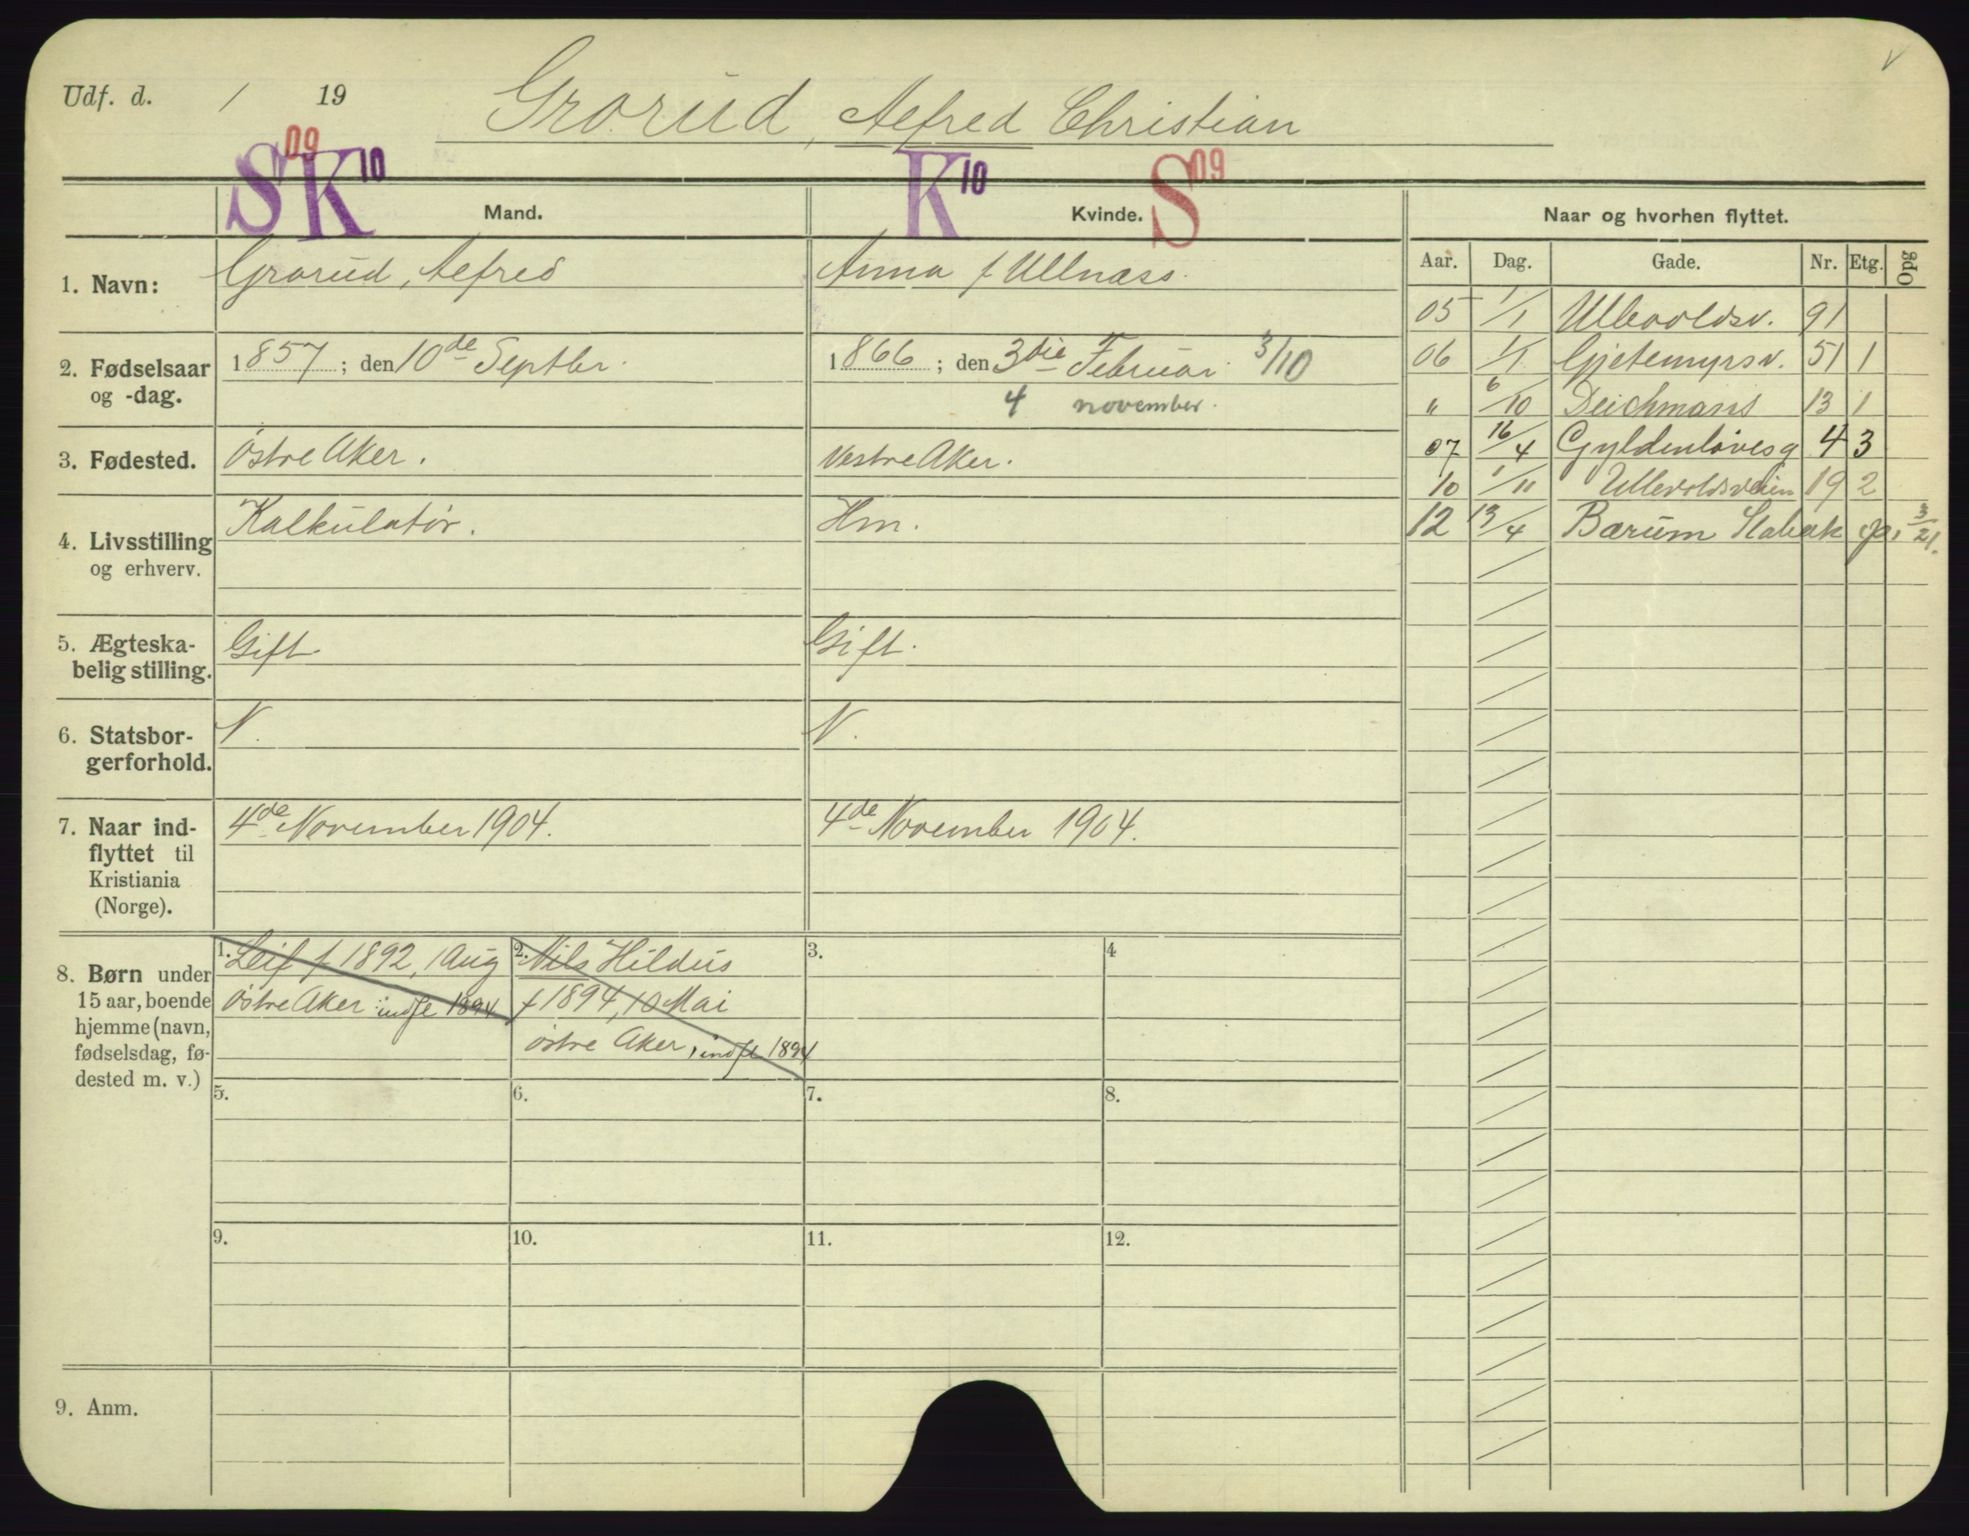 Udf. d. / 19 Grorud, Alfred Christian
S 09 K 10 K 10 S 09
Mand. Kvinde. Naar og hvorhen flyttet.
Aar. Dag. Gade. Nr. Etg. Opg
1. Navn: Grorud, Alfred Anna f Ullnæss.
2. Fødselsaar 1857; den 10de Septbr. 1866; den 3die Februar. 3/10
og -dag. 4 november.
3. Fødested. Østre Aker. Vestre Aker.
4. Livsstilling Kalkulatør. Hm.
og erhverv.
5. Ægteska- Gift. Gift.
belig stilling.
6. Statsbor- N. N.
gerforhold.
7. Naar ind- 4de November 1904. 4de November 1904.
flyttet til
Kristiania
(Norge).
05 1/1 Ullevoldsv. 91
06 1/1 Gjetemyrsv. 51 1
" 6/10 Deichmans 13 1
07 16/4 Gyldenløvesg 4 3
10 1/11 Ullevoldsveien 19 2
12 13/4 Bærum Stabæk 3/21.
8. Børn under
15 aar, boende
hjemme (navn,
fødselsdag, fø-
dested m. v.)
1. Leif f 1892, 1 Aug
Østre Aker indfl 1894
2. Nils Hildus
f 1894, 10 Mai
østre Aker, indfl 1894
3.
4
5.
6.
7.
8.
9.
10.
11.
12.
9. Anm.